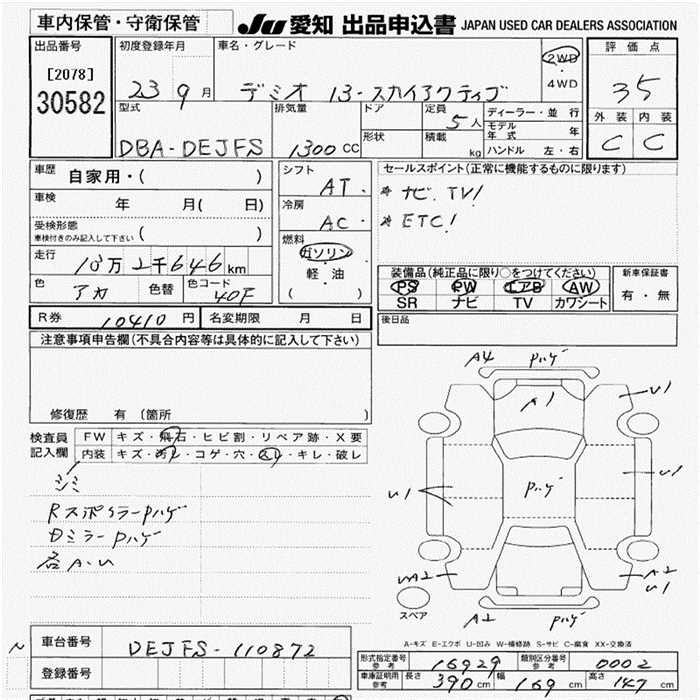 車内保管・守衛保管
JU 愛知 出品申込書 JAPAN USED CAR DEALERS ASSOCIATION
出品番号
[2078]
30582
初度登録年月
23 9月
車名・グレード
デミオ 13-スカイアクティブ
2WD
・
4WD
評価点
35
外装 内装
C C
型式
DBA-DEJFS
排気量
1300CC
ドア
形状
定員
5人
積載
kg
ディーラー・並行
モデル年式 年
ハンドル 左・右
車歴 自家用・( )
車検 年 月( 日)
受検形態
車検付きのみ記入して下さい ( )
走行 10万2千646km
色 アカ 色替 色コード 40F
シフト
AT.
冷房
AC.
燃料
ガソリン
軽・油
( )
セールスポイント(正常に機能するものに限ります)
* ナビ.TV!
* ETC!
装備品(純正品に限り○をつけてください)
PS PW エアB AW
SR ナビ TV カワシート
新車保証書
有・無
後日品
R券 10410円 名変期限 月 日
注意事項申告欄(不具合内容等は具体的に記入して下さい)
修復歴 有(箇所 )
検査員
記入欄
FW キズ・飛石・ヒビ割・リペア跡・X要
内装 キズ・汚レ・コゲ・穴・スレ・キレ・破レ
シミ
Rスポイラーハゲ
Dミラーハゲ
各A-U
A4 ハゲ
A1
U1
ハゲ
U1
U1
A2
A2
U1
A2 ハゲ
スペア
A-キズ E-エクボ U-凹み W-補修跡 S-サビ C-腐食 XX-交換済
車台番号 DEJFS-110872
登録番号
形式指定番号
参考
16929
類別区分番号
参考
0002
車庫証明用
参考
長さ 390cm 幅 169cm 高さ 147cm